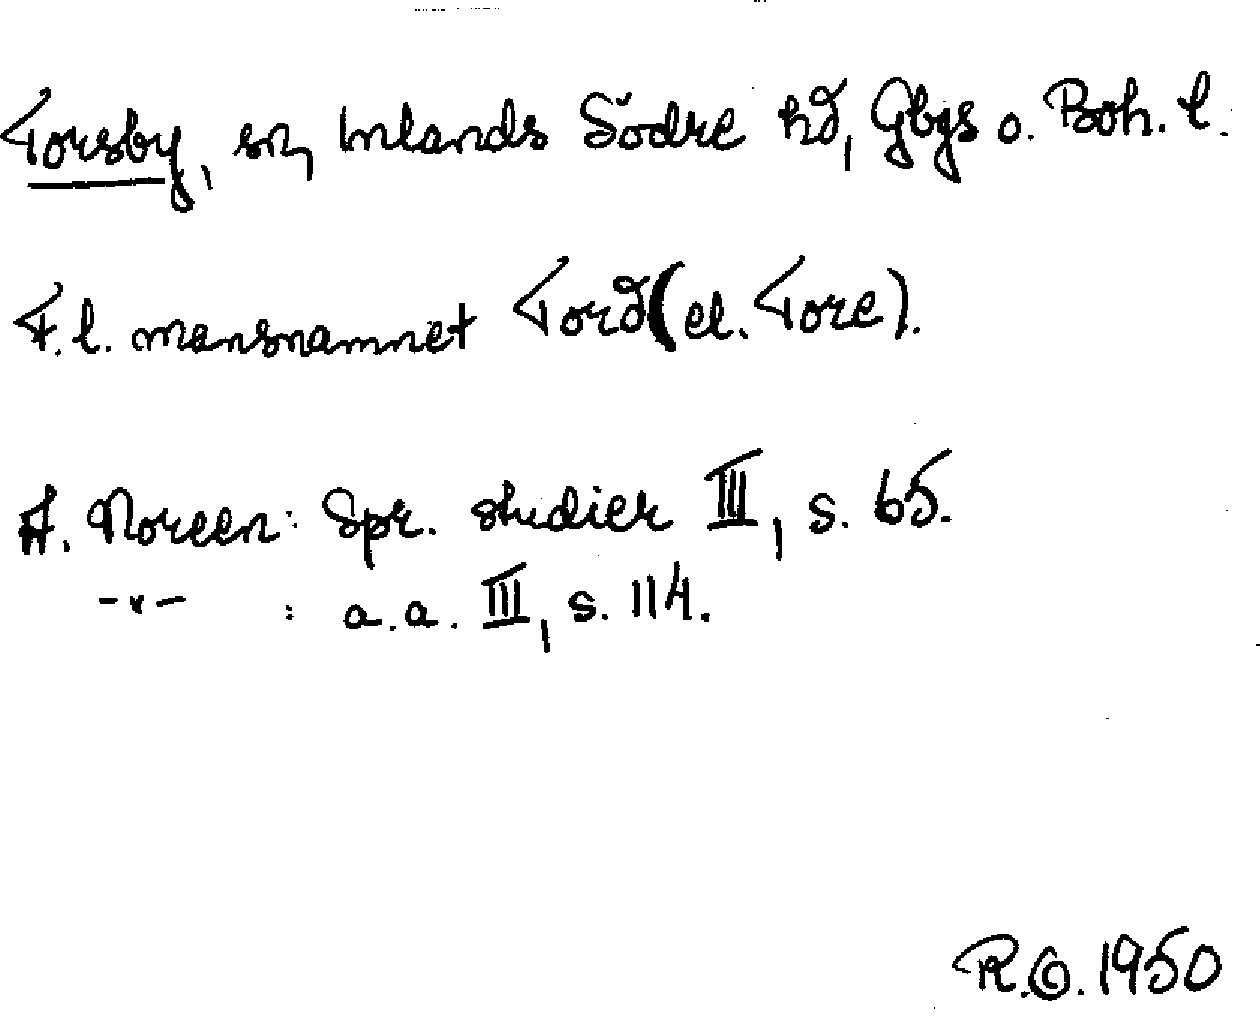 Torsby, sn, Inlands Södre hd, Gbgs o. Boh. l.
F.l. mansnamnet Tord (el. Tore).
A. Noreen: Spr. studier III, s. 65.
-"- : a.a. III, s. 114.
R.G. 1950